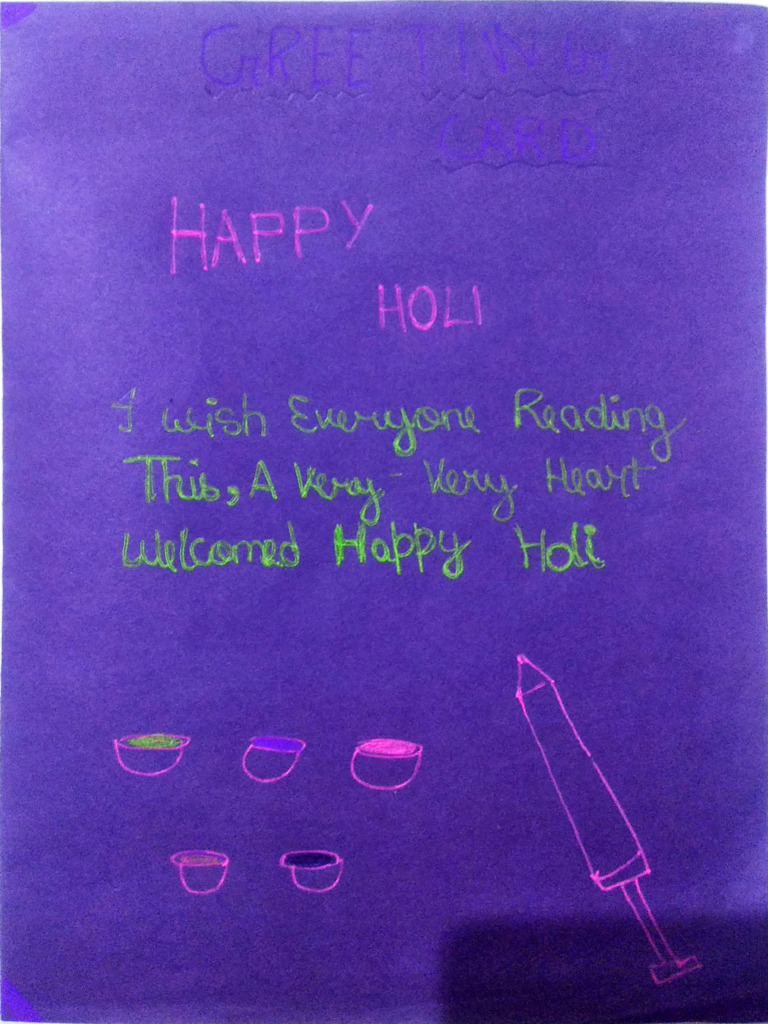 GREETING
CARD
HAPPY
HOLI
I wish Everyone Reading
This, A Very-Very Heart
Welcomed Happy Holi